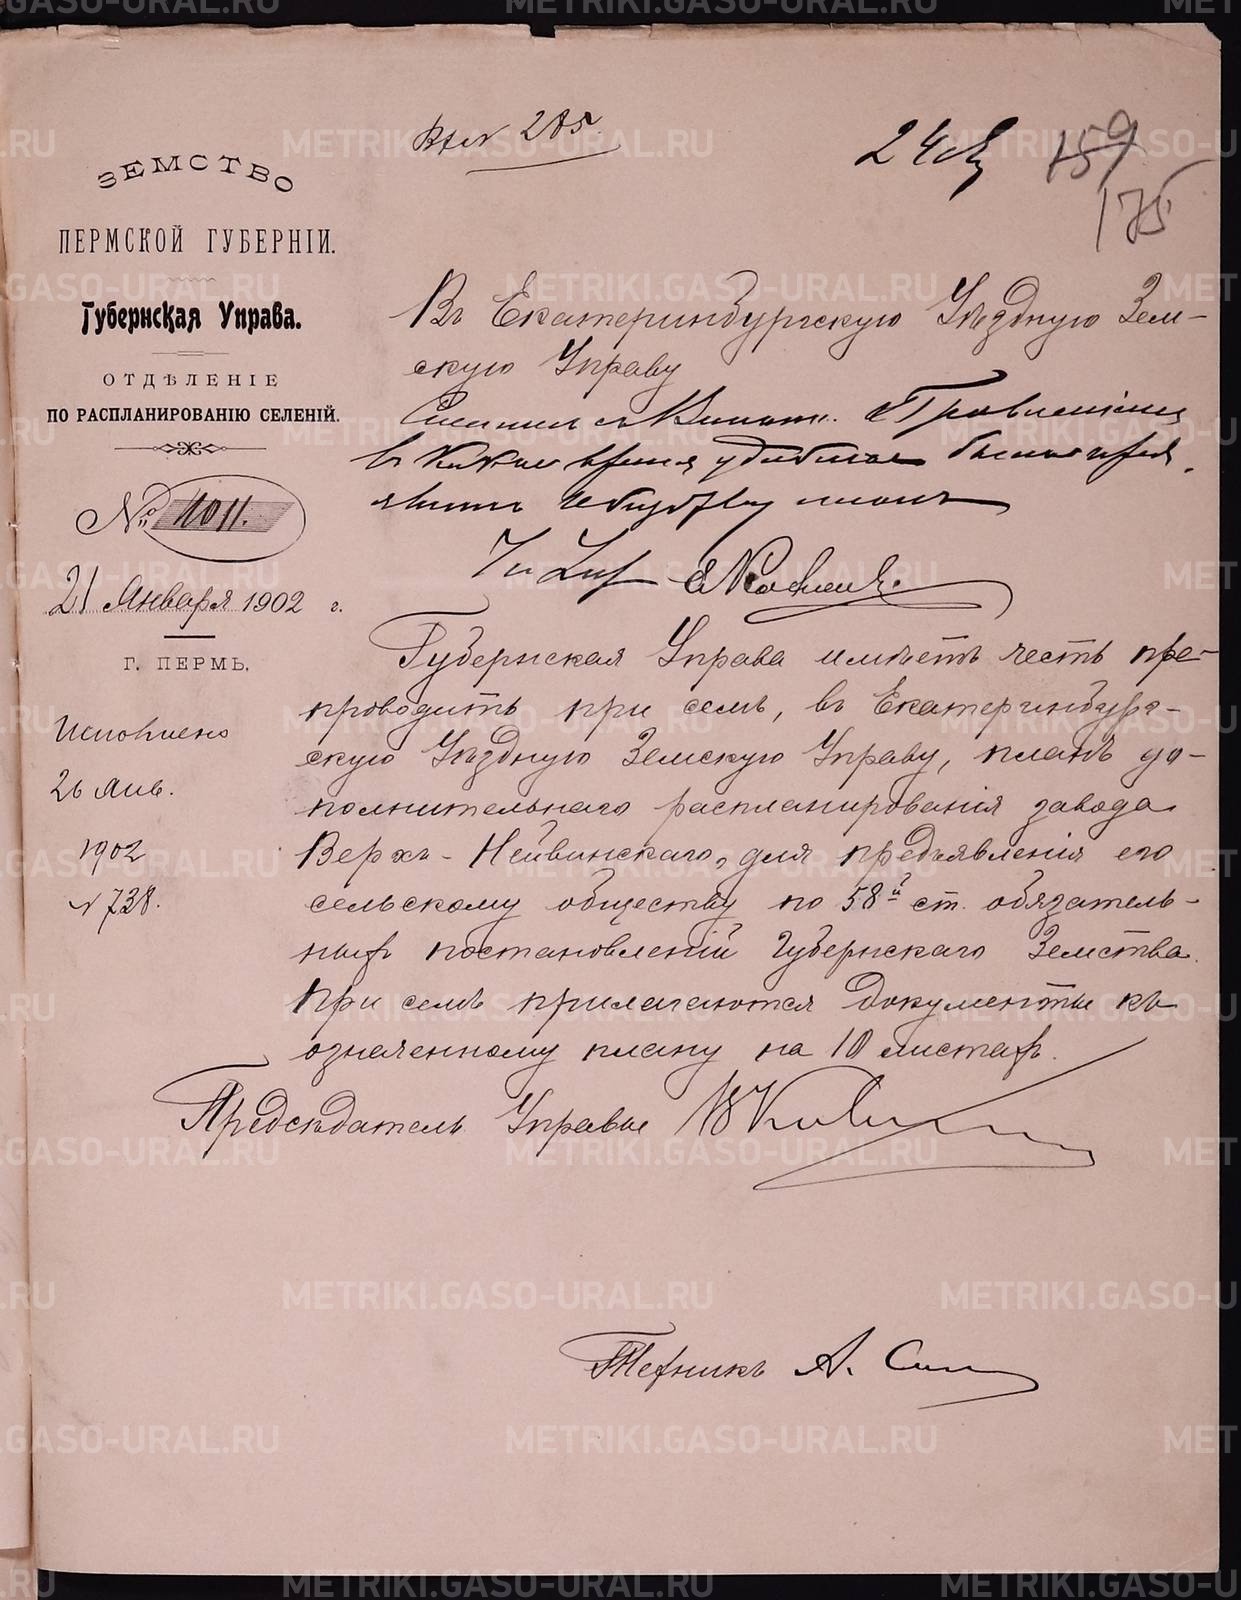 Вх № 285.
24 янв
159
175
ЗЕМСТВО
ПЕРМСКОЙ ГУБЕРНІИ.
Губернская Управа.
ОТДѢЛЕНІЕ
ПО РАСПЛАНИРОВАНІЮ СЕЛЕНІЙ.
№ 1011.
21 Января 1902 г.
Г. ПЕРМЬ.
Исполнено
26 янв.
1902
№ 738.
Въ Екатеринбургскую Уѣздную Зем-
скую Управу
в какое время удобнѣе было
Губернская Управа имѣетъ честь пре-
проводить при семъ, въ Екатеринбург-
скую Уѣздную Земскую Управу, планъ до-
полнительнаго распланированія завода
Верхъ-Нейвинскаго, для предъявленія его
сельскому обществу по 58й ст. обязатель-
ныхъ постановленій Губернскаго Земства.
При семъ прилагаются документы къ
означенному плану на 10 листахъ.
Предсѣдатель Управы
Техникъ А.
METRIKI.GASO-URAL.RU